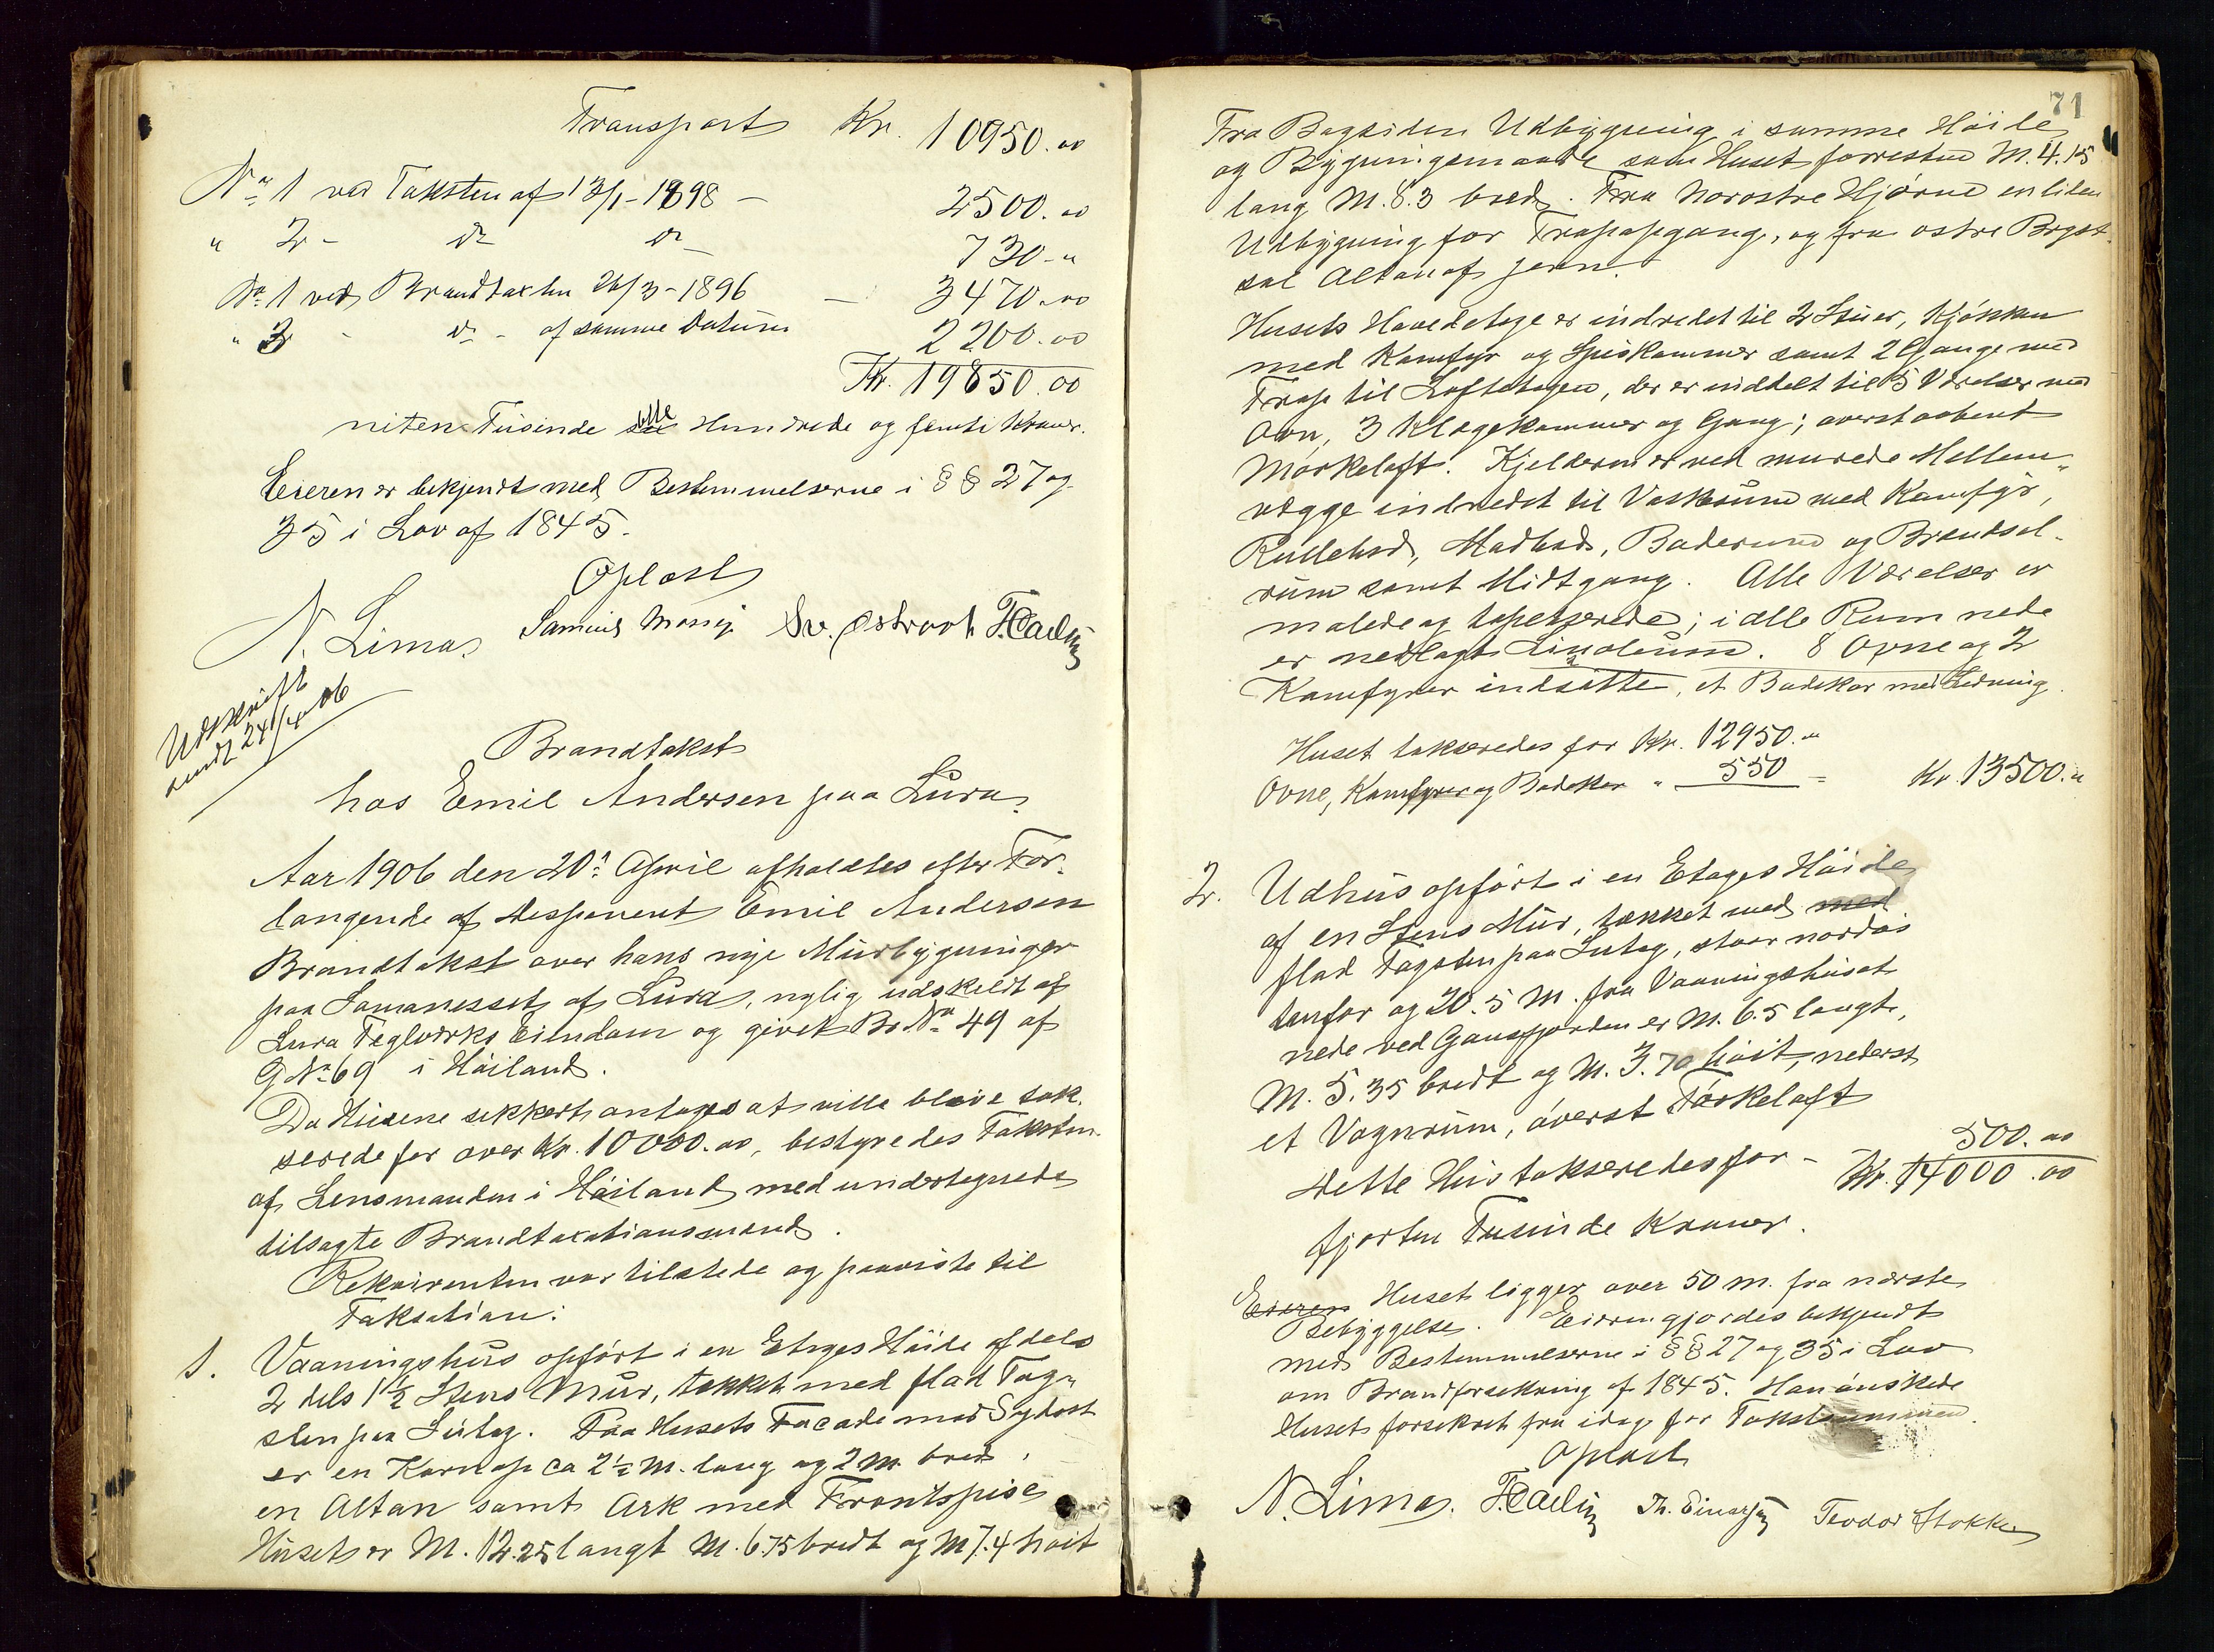 Transport Kr. 10950.00
No 1 ved Taksten af 13/1-1898 - 2500.00
" 2 - do do 730-"
No 1 ved Brandtaxten 26/3-1896 - 3470.00
" 3 - do - af samme Datum 2200.00
Kr. 19850.00
niten Tusinde otte Hundrede og femti Kroner.
Eieren er bekjendt med Bestemmelserne i §§ 27 og
35 i Lov af 1845.
Oplæst
N. Lima. Sv. Østraat
Udskrift
sendt 24/4 06
Brandtakst
hos Emil Andersen paa Lura.
Aar 1906 den 20de April afholdtes efter For-
langende af Disponent Emil Andersen
Brandtakst over hans nye Murbygninger
paa Lura, nylig udskildt af
Lura Teglværks Eiendom og givet Br. No 49 af
G No 69 i Höiland.
Da Husene sikkert antages at ville blive tak-
serede for over Kr. 10000.00, bestyredes Taksten
af Lensmanden i Höiland med undertegnede
tilsagte Brandtaxationsmænd.
Rekvirenten var tilstede og paaviste til
Taksation:
1. Vaaningshus opfört i en Etages Höide af dels
2 dels 1½ Stens Mur, tækket med flad Tag-
sten paa Sutag. Paa Husets Facade mod Sydost
er en Karnap ca 2½ M. lang og 2 M. bred,
en Altan samt Ark med Frontspise
Huset er M. 12.25 langt M. 6.75 bredt og M 7.4 höit
71
Fra Bagsiden Udbygning i samme Höide
og Bygningsmaade som Huset forresten M. 4.15
lang M. 8.3 bred. Fra nordostre Hjörne en liden
Udbygning for Trapopgang, og fra ostre
Altan af Jern.
Husets Hovedetage er indredet til 2 Stuer, Kjökken
med Komfyr og Spiskammer samt 2 Gange med
Trap til Loftetagen, der er inddelt til 5 Værelser med
Ovn, 3 Klægekammer og Gang; överst aabent
Mörkeloft. Kjelderen er ved murede Mellem-
vægge indredet til Vaskerum med Komfyr,
Rullebod, Madbod, Baderum og Brændsel-
rum samt Midtgang. Alle Værelser er
malede og tapetserede; i alle Rum nede
er nedlagt Linoleum. 8 Ovne og 2
Komfyrer indsatte, et Badekar med Ledning.
Huset takseredes for Kr. 12950.00
Ovne, Komfyrer og Badekar " 550 = Kr. 13500.00
2. Udhus opfört i en Etages Höide
af en Stens Mur, tækket med med
flad Tagsten paa Sutag, staar nordös
tenfor og 20.5 M. fra Vaaningshuset
nede ved Gansfjorden er M. 6.5 langt,
M. 5.35 bredt og M. 3.70 höit, nederst
et Vognrum, överst Törkeloft
Dette Hus takseredes for - 500.00
Kr. 14000.00
fjorten Tusinde Kroner.
Eieren Huset ligger over 50 m. fra nærste
Bebyggelse. Eieren gjordes bekjendt
med Bestemmelserne i §§ 27 og 35 i Lov
om Brandforsikring af 1845. Han önskede
Huset forsikret fra idag for Takstsummen.
Oplæst
N. Lima. Th. Einarsen Teodor Stokke